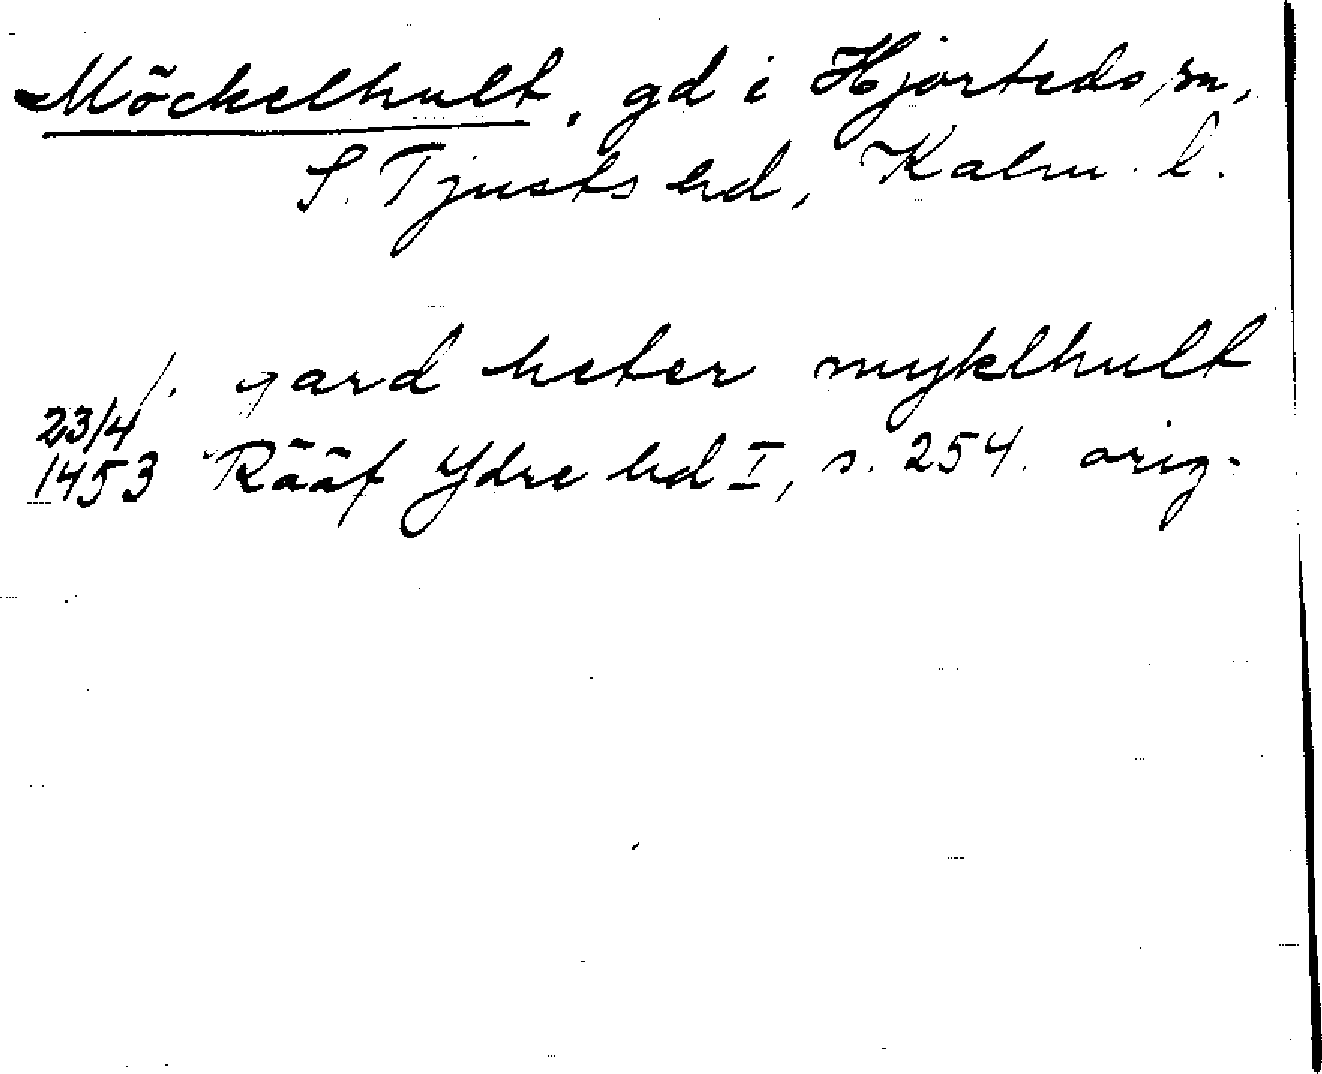 Möckelhult, gd i Hjorteds sn,
S. Tjusts hd, Kalm. l.
1. gard heter myklhult
23/4
1453 Rääf Ydre hd I, s. 254. orig.